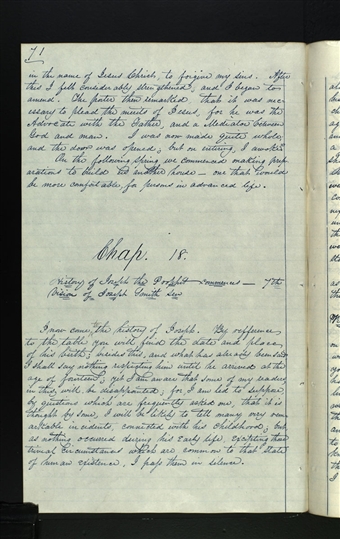 71
in the name of Jesus Christ, to forgive my sins. After
this I felt considerably strengthened, and I began to
amend. The porter then remarked that it was nec-
essary to plead the merits of Jesus, for he was the
Advocate with the Father, and a Mediator between
God and man. I was now made quite whole
and the door was opened, but on entering, I awoke.
On the following spring we commenced making prep-
arations to build another house — one that would
be more comfortable for persons in advanced life.
Chap. 18.
History of Joseph the Prophet commences — 7th
Vision of Joseph Smith Sen
I now come to the history of Joseph. By reference
to the table you will find the date and place
of his birth; besides this, and what has already been said
I shall say nothing respecting him until he arrived at the
age of fourteen; yet I am aware that some of my readers
in this will be disappointed, for I am led to suppose
by questions which are frequently asked me, that it is
thought by some, I will be likely to tell many very rem-
arkable incidents, connected with his childhood; but
as nothing occured during his early life, excepting those
trivial circumstances which are common to that state
of human existence, I pass them in silence.